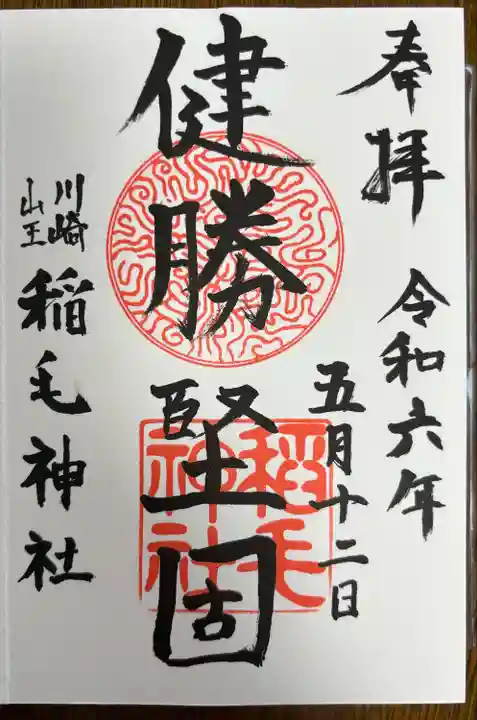 奉拝 令和六年
五月十二日
健勝堅固
川崎
山王
稲毛神社
稲毛
神社